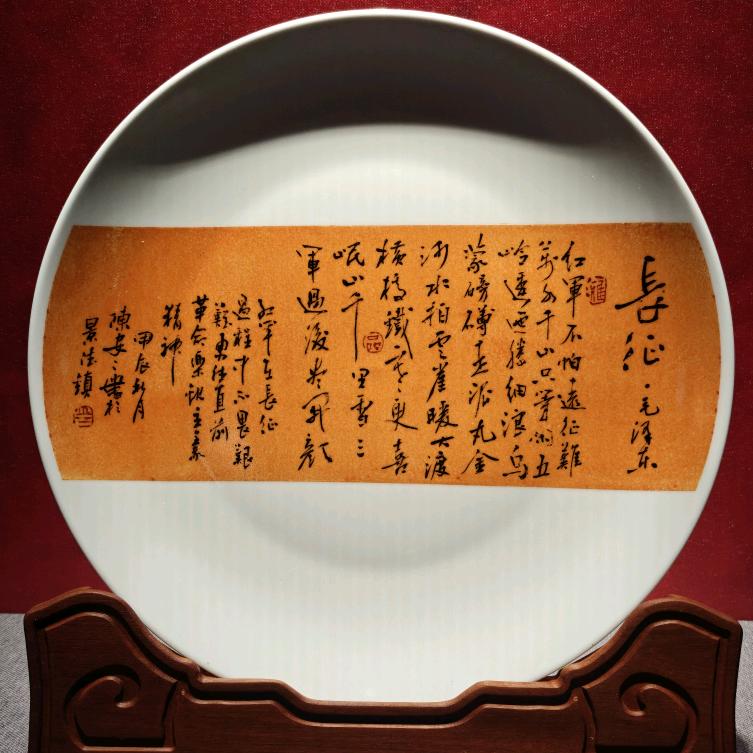 長征·毛澤东
红軍不怕遠征難
萬水千山只等閒五
岭逶迤騰细浪乌
蒙磅礴走泥丸金
沙水拍雲崖暖大渡
橫橋鐵索寒更喜
岷山千里雪三
軍過後尽开颜
红军在長征
過程中不畏艱
難勇往直前
革命樂觀主義
精神
甲辰秋月
陳安安書於
景德鎮